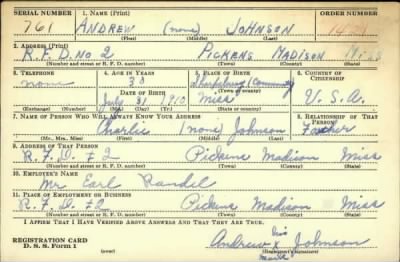 SERIAL NUMBER 1. NAME (Print) ORDER NUMBER
761 ANDREW (none) JOHNSON
(First) (Middle) (Last)
2. ADDRESS (Print)
R.F.D. No 2 PICKENS MADISON MISS
(Number and street or R. F. D. number) (Town) (County) (State)
3. TELEPHONE 4. AGE IN YEARS 5. PLACE OF BIRTH 6. COUNTRY OF CITIZENSHIP
none 30 (Community)
DATE OF BIRTH (Town or county)
July 31 1910 Miss U.S.A.
(Exchange) (Number) (Mo.) (Day) (Yr.) (State or country)
7. NAME OF PERSON WHO WILL ALWAYS KNOW YOUR ADDRESS 8. RELATIONSHIP OF THAT PERSON
Charlie (none) Johnson Father
(Mr., Mrs., Miss) (First) (Middle) (Last)
9. ADDRESS OF THAT PERSON
R.F.D. #2 Pickens Madison Miss
(Number and street or R. F. D. number) (Town) (County) (State)
10. EMPLOYER'S NAME
Mr Earl Randel
11. PLACE OF EMPLOYMENT OR BUSINESS
R.F.D. #2 Pickens Madison Miss
(Number and street or R. F. D. number) (Town) (County) (State)
I AFFIRM THAT I HAVE VERIFIED ABOVE ANSWERS AND THAT THEY ARE TRUE.
REGISTRATION CARD
D. S. S. Form 1 (over) Andrew his x mark Johnson
(Registrant's signature)